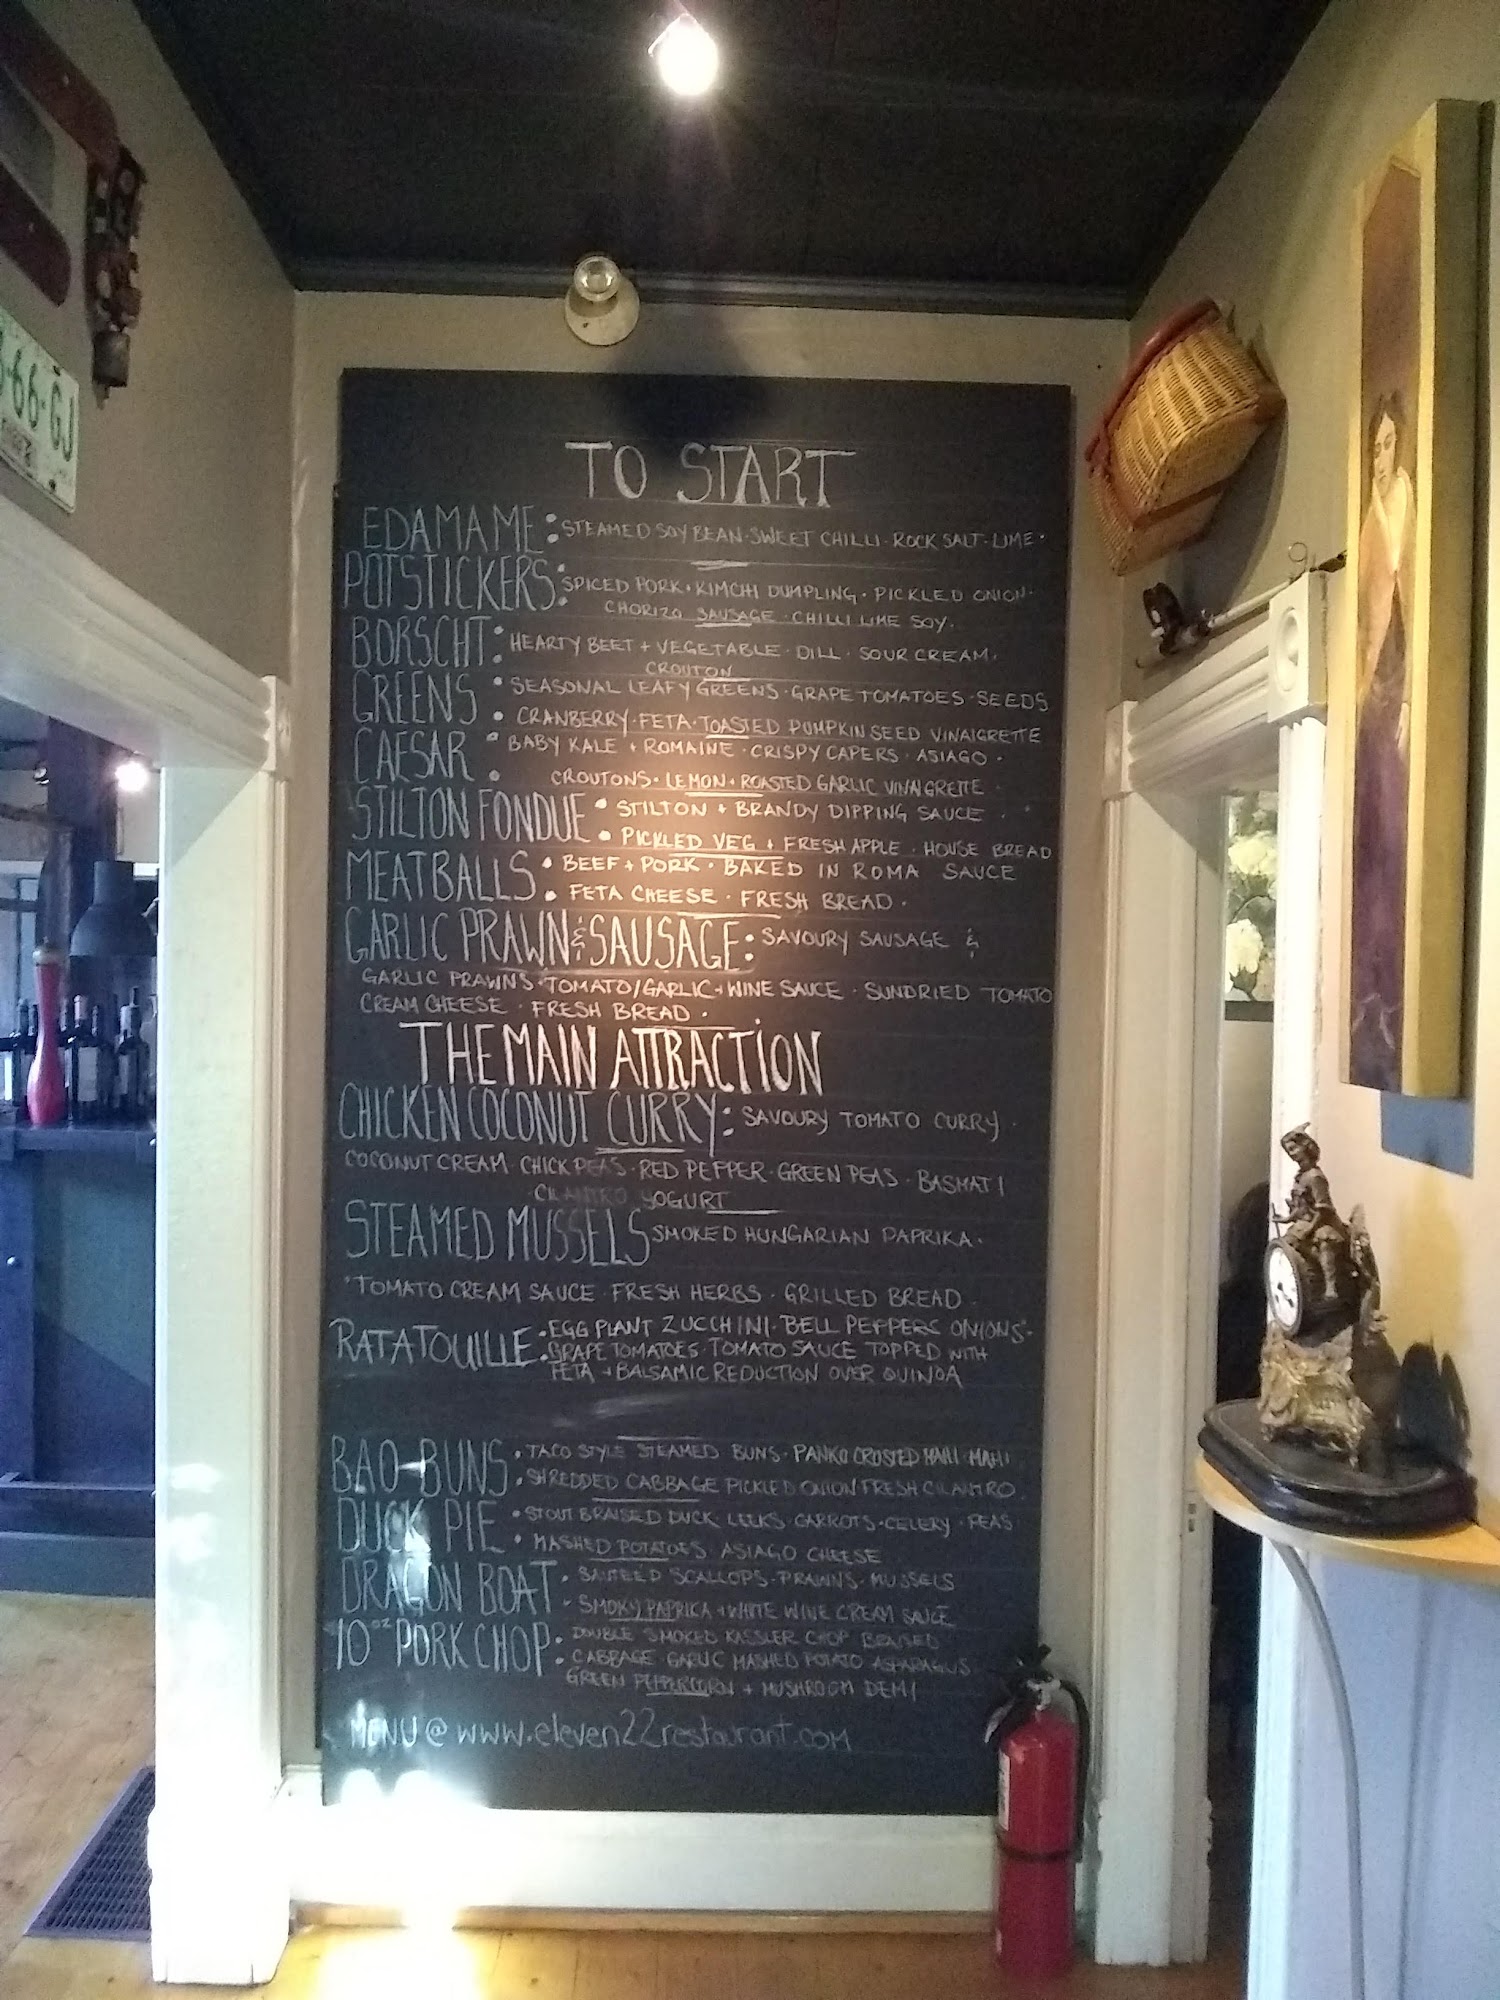 6-66·GJ
TO START
EDAMAME: STEAMED SOY BEAN · SWEET CHILLI · ROCK SALT · LIME ·
POTSTICKERS: SPICED PORK + KIMCHI DUMPLING · PICKLED ONION ·
CHORIZO SAUSAGE · CHILLI LIME SOY.
BORSCHT: HEARTY BEET + VEGETABLE · DILL · SOUR CREAM ·
CROUTON
GREENS: SEASONAL LEAFY GREENS · GRAPE TOMATOES · SEEDS
CRANBERRY · FETA · TOASTED PUMPKIN SEED VINAIGRETTE
CAESAR: BABY KALE + ROMAINE · CRISPY CAPERS · ASIAGO ·
CROUTONS · LEMON + ROASTED GARLIC VINAIGRETTE ·
STILTON FONDUE: STILTON + BRANDY DIPPING SAUCE ·
PICKLED VEG + FRESH APPLE · HOUSE BREAD
MEATBALLS: BEEF + PORK · BAKED IN ROMA SAUCE
FETA CHEESE · FRESH BREAD ·
GARLIC PRAWN & SAUSAGE: SAVOURY SAUSAGE &
GARLIC PRAWNS · TOMATO/GARLIC + WINE SAUCE · SUNDRIED TOMATO
CREAM CHEESE · FRESH BREAD ·
THE MAIN ATTRACTION
CHICKEN COCONUT CURRY: SAVOURY TOMATO CURRY ·
COCONUT CREAM · CHICK PEAS · RED PEPPER · GREEN PEAS · BASMATI
· CILANTRO YOGURT
STEAMED MUSSELS SMOKED HUNGARIAN PAPRIKA ·
· TOMATO CREAM SAUCE · FRESH HERBS · GRILLED BREAD ·
RATATOUILLE: EGG PLANT ZUCCHINI · BELL PEPPERS ONIONS ·
GRAPE TOMATOES · TOMATO SAUCE TOPPED WITH
FETA + BALSAMIC REDUCTION OVER QUINOA
BAO-BUNS: TACO STYLE STEAMED BUNS · PANKO CRUSTED MAHI · MAHI
SHREDDED CABBAGE PICKLED ONION FRESH CILANTRO
DUCK PIE: STOUT BRAISED DUCK · LEEKS · CARROTS · CELERY · PEAS
MASHED POTATOES ASIAGO CHEESE
DRAGON BOAT: SAUTEED SCALLOPS · PRAWNS · MUSSELS
SMOKY PAPRIKA + WHITE WINE CREAM SAUCE
10 OZ PORK CHOP: DOUBLE SMOKED KASSLER CHOP BRAISED
CABBAGE · GARLIC MASHED POTATO ASPARAGUS
GREEN PEPPERCORN + MUSHROOM DEMI
MENU @ www.eleven22restaurant.com